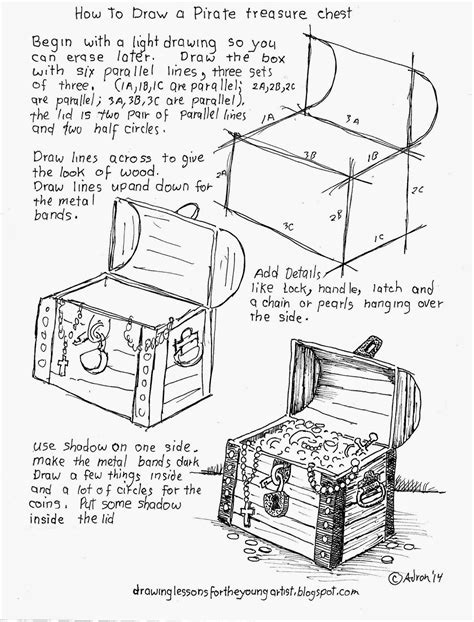 How To Draw a Pirate treasure chest
Begin with a light drawing so you
can erase later. Draw the box
with six parallel lines, three sets
of three. (1A,1B,1C are parallel; 2A,2B,2C
are parallel; 3A,3B,3C are parallel).
the lid is two pair of parallel lines
and two half circles.
1A
3A
1B
3B
2A
2C
2B
3C
1C
Draw lines across to give
the look of wood.
Draw lines up and down for
the metal
bands.
Add Details
like lock, handle, latch and
a chain or pearls hanging over
the side.
use shadow on one side.
make the metal bands dark
Draw a few things inside
and a lot of circles for the
coins. Put some shadow
inside the lid
© Adron '14
drawinglessonsfortheyoungartist.blogspot.com